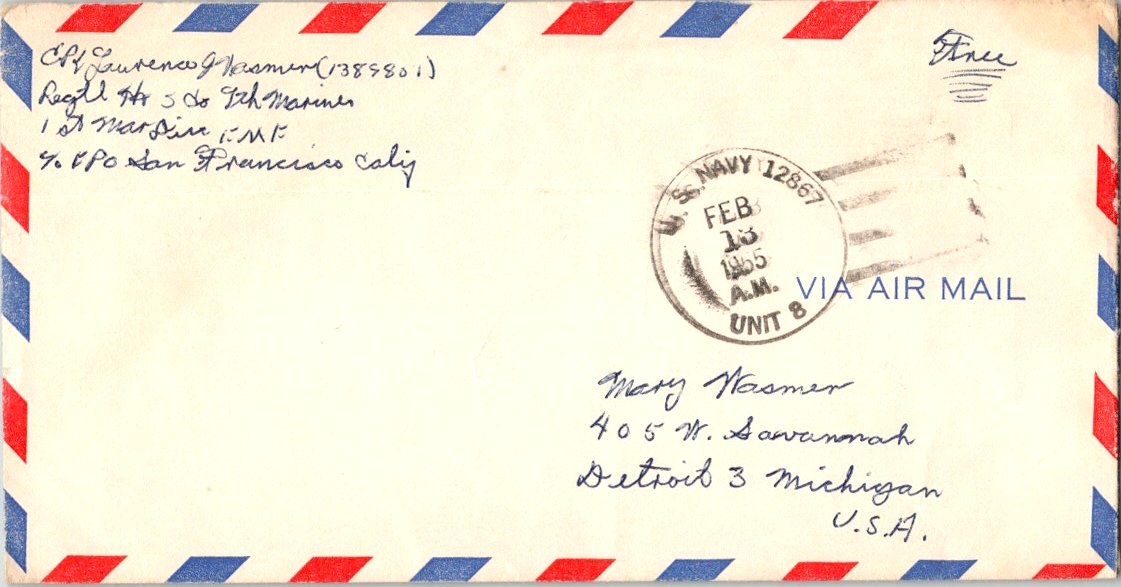 CPL Laurence J Wasmer (1389801)
Regtl Hq S Co 7th Marines
1 st Mar Div F M F
c/o FPO San Francisco Calif
Free
U. S. NAVY 12867
FEB
13
1955
A.M.
UNIT 8
VIA AIR MAIL
Mary Wasmer
405 W. Savannah
Detroit 3 Michigan
U.S.A.